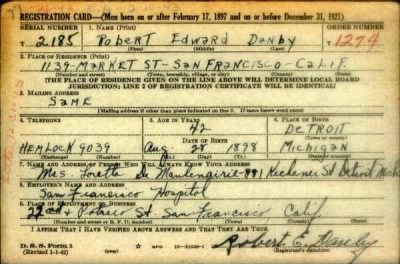 REGISTRATION CARD—(Men born on or after February 17, 1897 and on or before December 31, 1921)
SERIAL NUMBER 1. NAME (Print) ORDER NUMBER
T 2,185 Robert Edward Danby 1274
(First) (Middle) (Last)
2. PLACE OF RESIDENCE (Print)
1139-MARKET ST-SAN FRANCISCO-CALIF.
(Number and street) (Town, township, village, or city) (County) (State)
[THE PLACE OF RESIDENCE GIVEN ON THE LINE ABOVE WILL DETERMINE LOCAL BOARD
JURISDICTION; LINE 2 OF REGISTRATION CERTIFICATE WILL BE IDENTICAL]
3. MAILING ADDRESS
SAME
[Mailing address if other than place indicated on line 2. If same insert word same]
4. TELEPHONE 5. AGE IN YEARS 6. PLACE OF BIRTH
42 DETROIT
DATE OF BIRTH
HEMLOCK 9039 Aug 28 1898 MICHIGAN
(Exchange) (Number) (Mo.) (Day) (Yr.) (State or country)
7. NAME AND ADDRESS OF PERSON WHO WILL ALWAYS KNOW YOUR ADDRESS
Mrs. Loretta De St Detroit Mich
8. EMPLOYER'S NAME AND ADDRESS
San Francisco Hospital
9. PLACE OF EMPLOYMENT OR BUSINESS
22nd & Potrero St. San Francisco, Calif
(Number and street or R. F. D. number) (Town) (County) (State)
I AFFIRM THAT I HAVE VERIFIED ABOVE ANSWERS AND THAT THEY ARE TRUE.
D. S. S. Form 1
(Revised 1-1-42) GPO Robert E. Danby
(Registrant's signature)